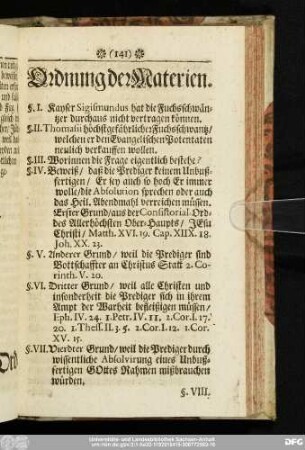 (141)
Ordnung der Materien.
§. I. Kayser Sigismundus hat die Fuchsschwän-
tzer durchaus nicht vertragen können.
§. II. Thomasii höchstgefährlicher Fuchsschwantz/
welchen er den Evangelischen Potentaten
neulich verkauffen wollen.
§. III. Worinnen die Frage eigentlich bestehe/
§. IV. Beweiß/ daß die Prediger keinem Unbuß-
fertigen/ Er sey auch so hoch Er immer
wolle/ die Absolution sprechen oder auch
das Heil. Abendmahl verreichen müssen.
Erster Grund/ aus der Consistorial-Ord-
des Allerhöchsten Ober-Haupts/ JEsu
Christi/ Matth. XVI. 19. Cap. XIIX. 18.
Joh. XX. 23.
§. V. Anderer Grund/ weil die Prediger sind
Bottschaffter an Christus Statt 2. Co-
rinth. V. 20.
§. VI. Dritter Grund/ weil alle Christen und
insonderheit die Prediger sich in ihrem
Ampt der Warheit befleißigen müsen/
Eph. IV. 24. 1. Petr. IV. 11. 1. Cor. I. 17.
20. 1 Thess. II. 3. 5. 2. Cor. I. 12. 1. Cor.
XV. 15.
§. VII. Vierdter Grund/ weil die Prediger durch
wissentliche Absolvirung eines Unbuß-
fertigen GOttes Nahmen mißbrauchen
würden.
§. VIII.
Universitäts- und Landesbibliothek Sachsen-Anhalt